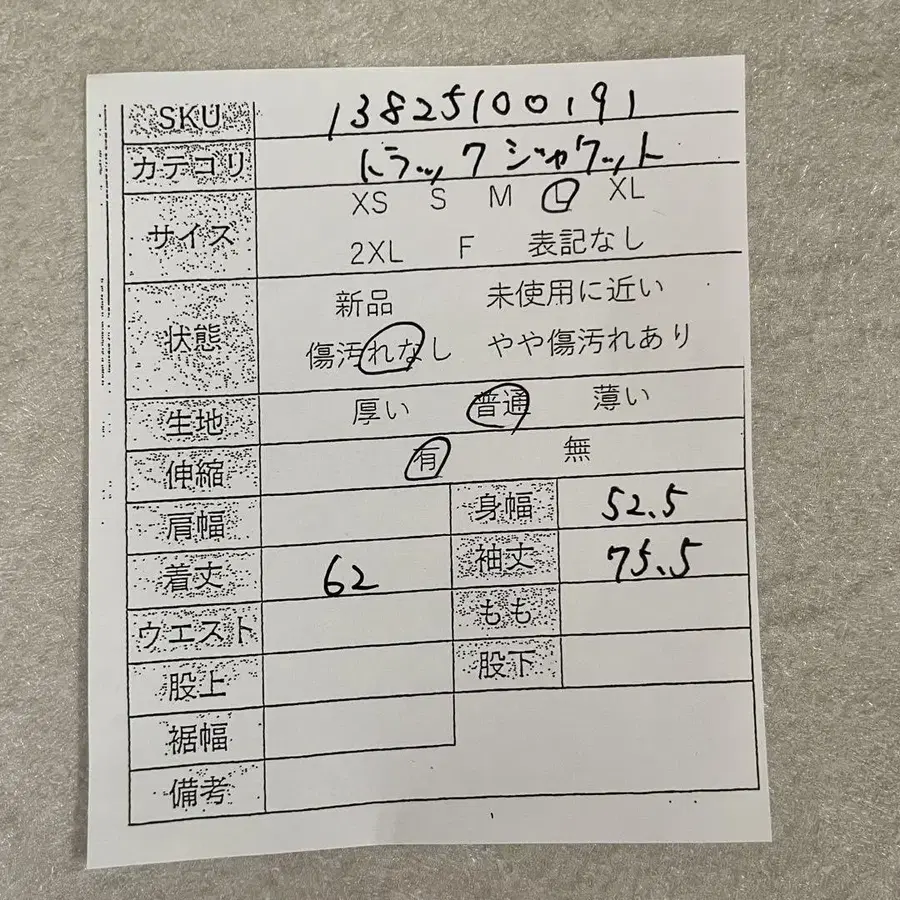 SKU 13825100191
カテゴリ トラックジャケット
サイズ XS S M L XL
2XL F 表記なし
状態 新品 未使用に近い
傷汚れなし やや傷汚れあり
生地 厚い 普通 薄い
伸縮 有 無
肩幅 身幅 52.5
着丈 62 袖丈 75.5
ウエスト もも
股上 股下
裾幅
備考